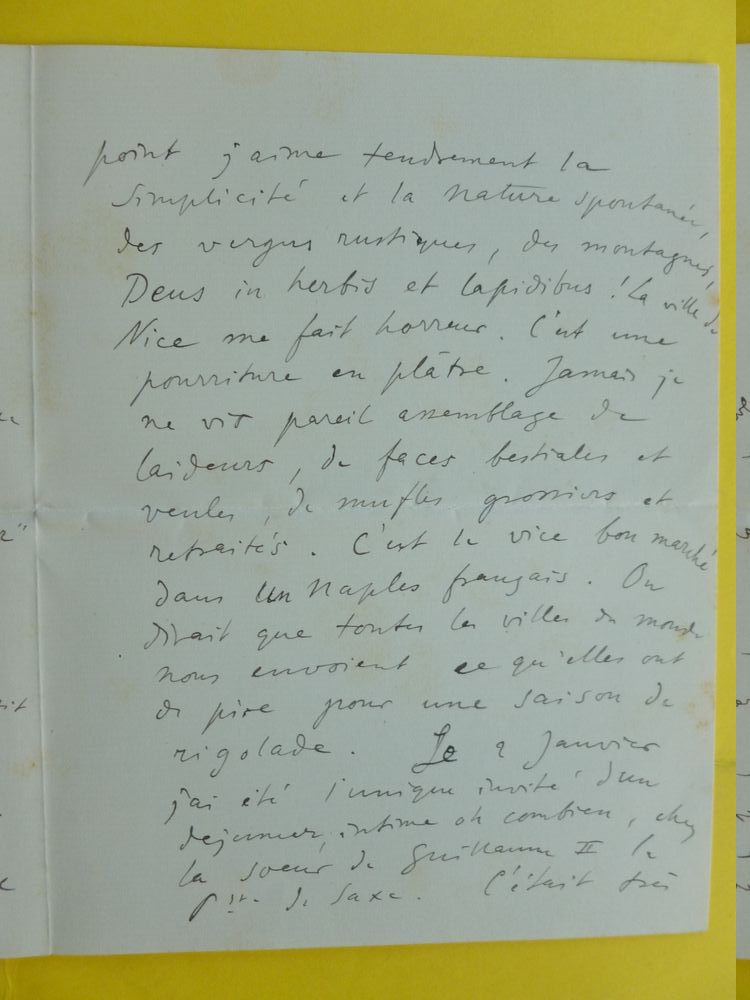 point j'aime tendrement la
simplicité et la nature spontanée,
des vergers rustiques, des montagnes,
Deus in herbis et lapidibus ! La ville de
Nice me fait horreur. C'est une
pourriture en plâtre. Jamais je
ne vis pareil assemblage de
laideurs, de faces bestiales et
veules, de mufles grossiers et
retraités. C'est le vice bon marché
dans un Naples français. On
dirait que toutes les villes du monde
nous envoient ce qu'elles ont
de pire pour une saison de
rigolade. Le 2 Janvier
j'ai été l'unique invité d'un
dejeuner, intime oh combien, chez
la soeur de Guillaume II la
Psse de Saxe. C'était très